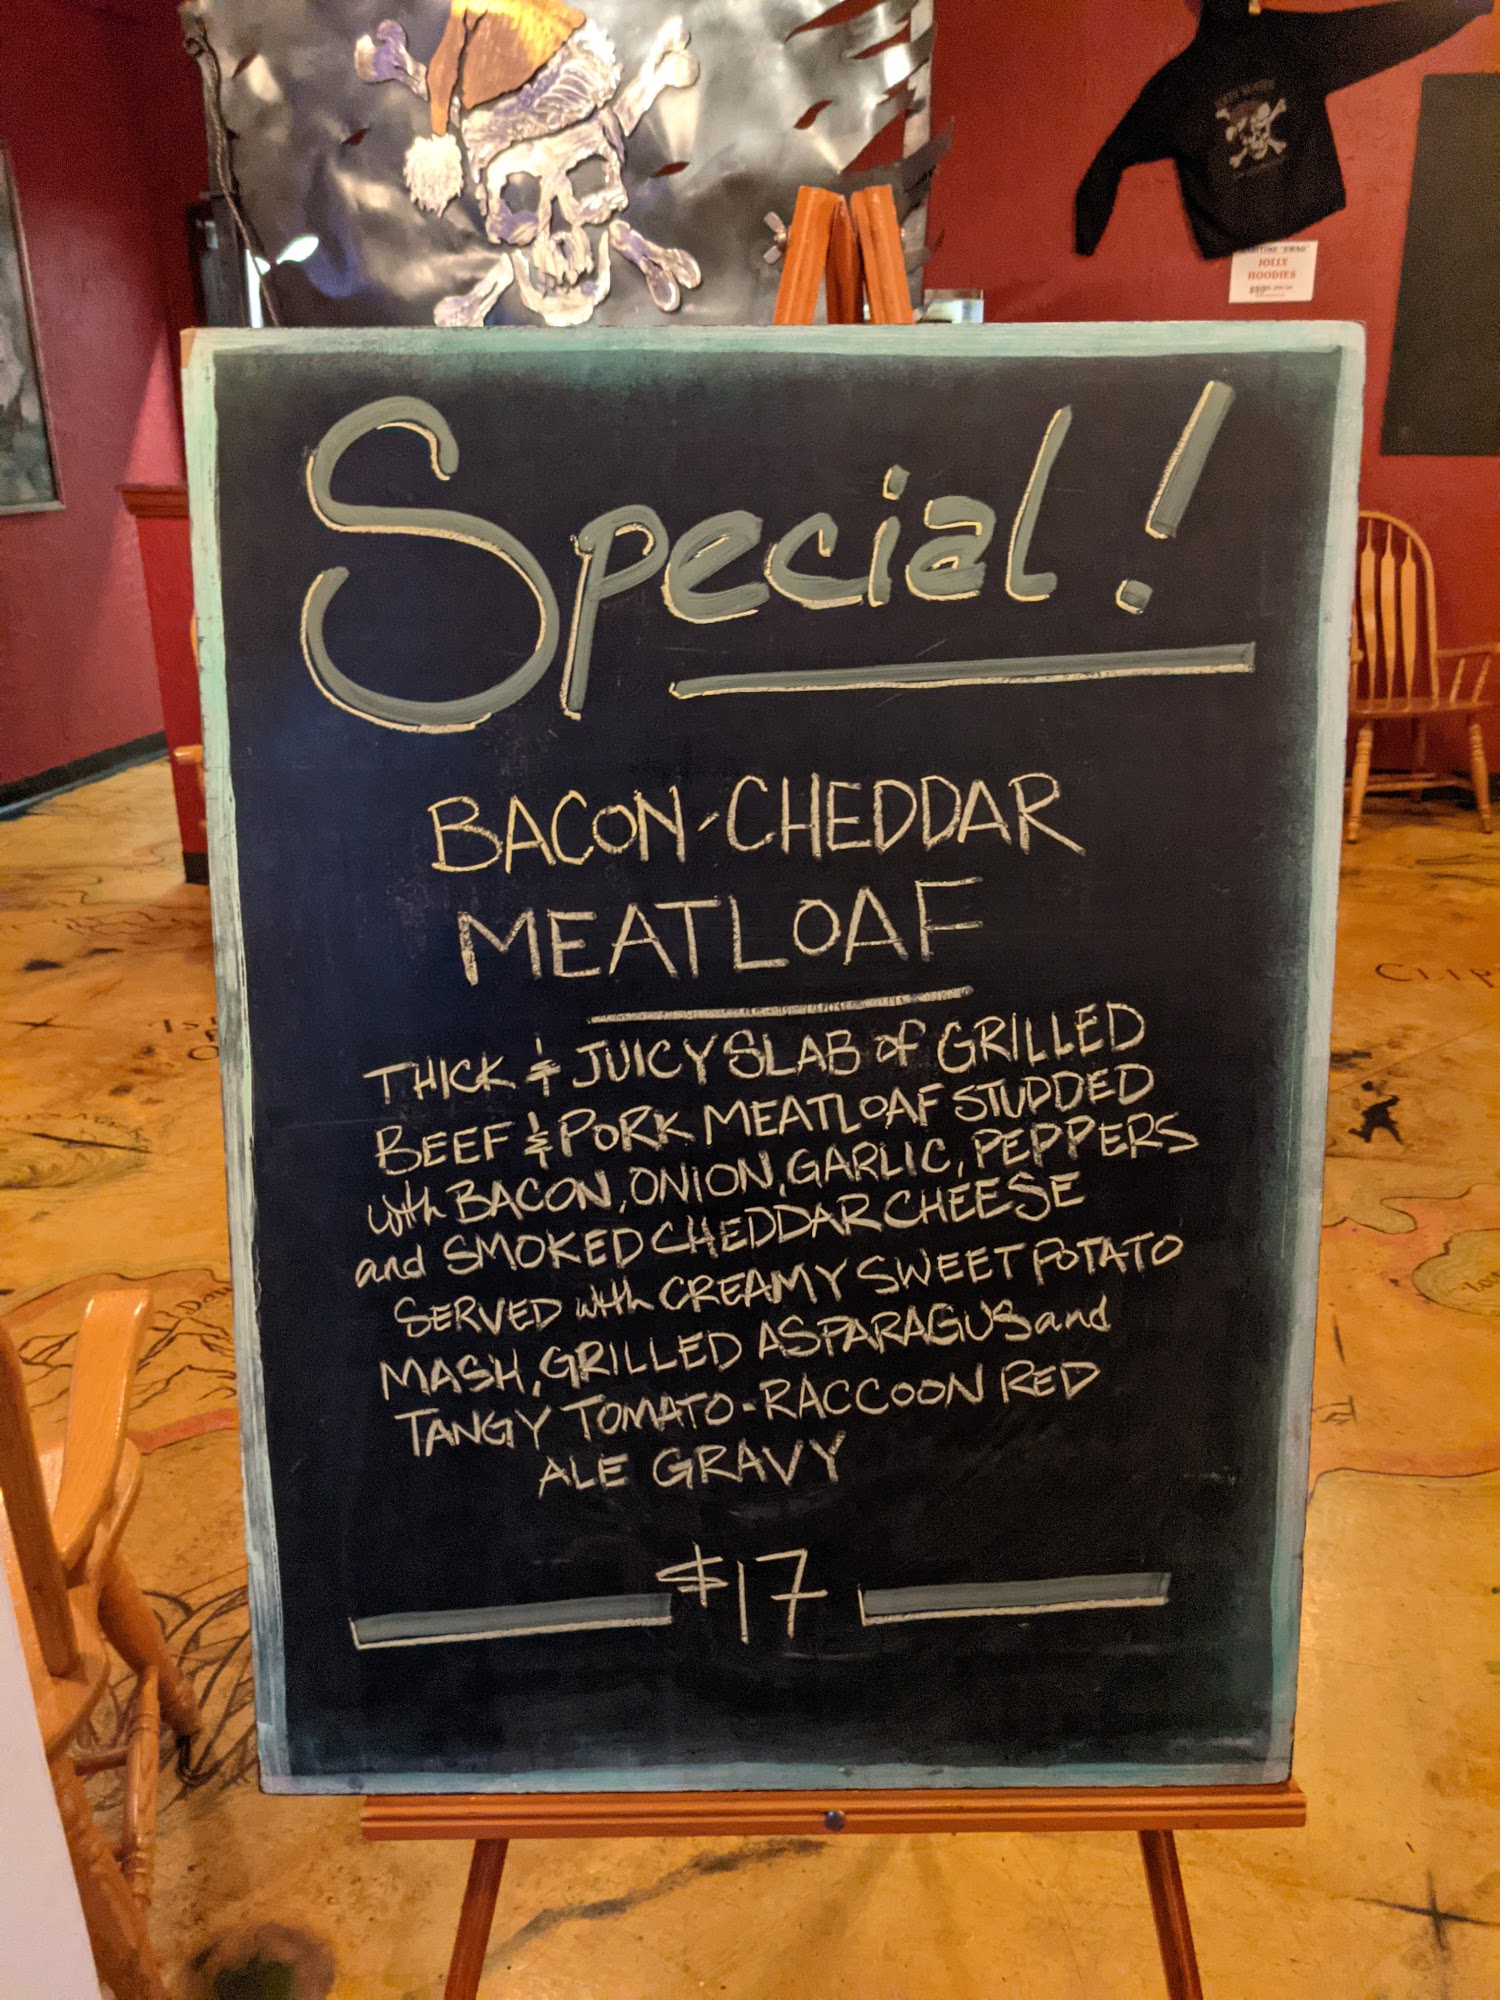 JOLLY
HOODIES
Special!
BACON-CHEDDAR
MEATLOAF
THICK & JUICY SLAB of GRILLED
BEEF & PORK MEATLOAF STUDDED
with BACON, ONION, GARLIC, PEPPERS
and SMOKED CHEDDAR CHEESE
SERVED with CREAMY SWEET POTATO
MASH, GRILLED ASPARAGUS and
TANGY TOMATO-RACCOON RED
ALE GRAVY
$17